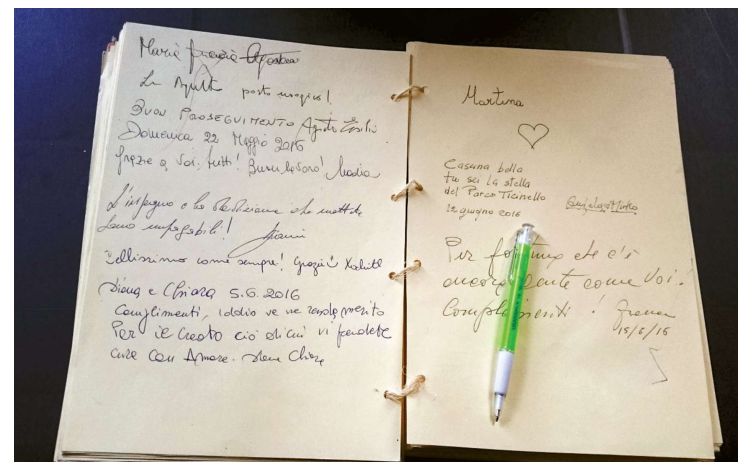 Maria Grazia
posto magico!
BUON PROSEGUIMENTO
Domenica 22 Maggio 2016
Grazie a voi tutti! Buon lavoro! Nadia
L'impegno e la dedizione che mettete
sono impagabili! Gianni
Bellissimo come sempre! Grazie!
Diana e Chiara 5.6.2016
Complimenti, iddio ve ne renda merito
Per il creato ciò di cui vi prendete
cura con Amore. Diana Chiara
Martina
Cascina bella
tu sei la stella
del Parco Ticinello
12 giugno 2016
Per fortuna che c'è
ancora gente come Voi!
Complimenti!
15/6/16